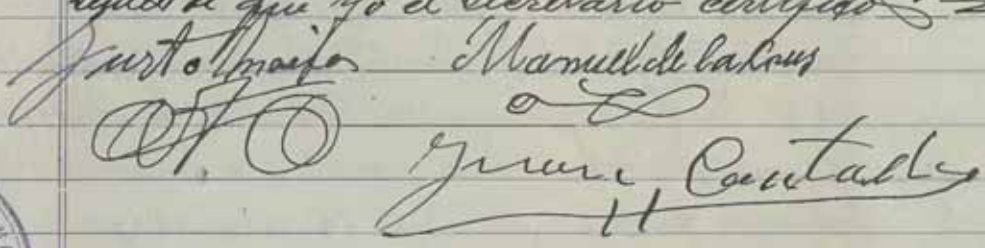 de que yo el secretario certifico
Justo Manuel de la Cruz
Juan Cantador